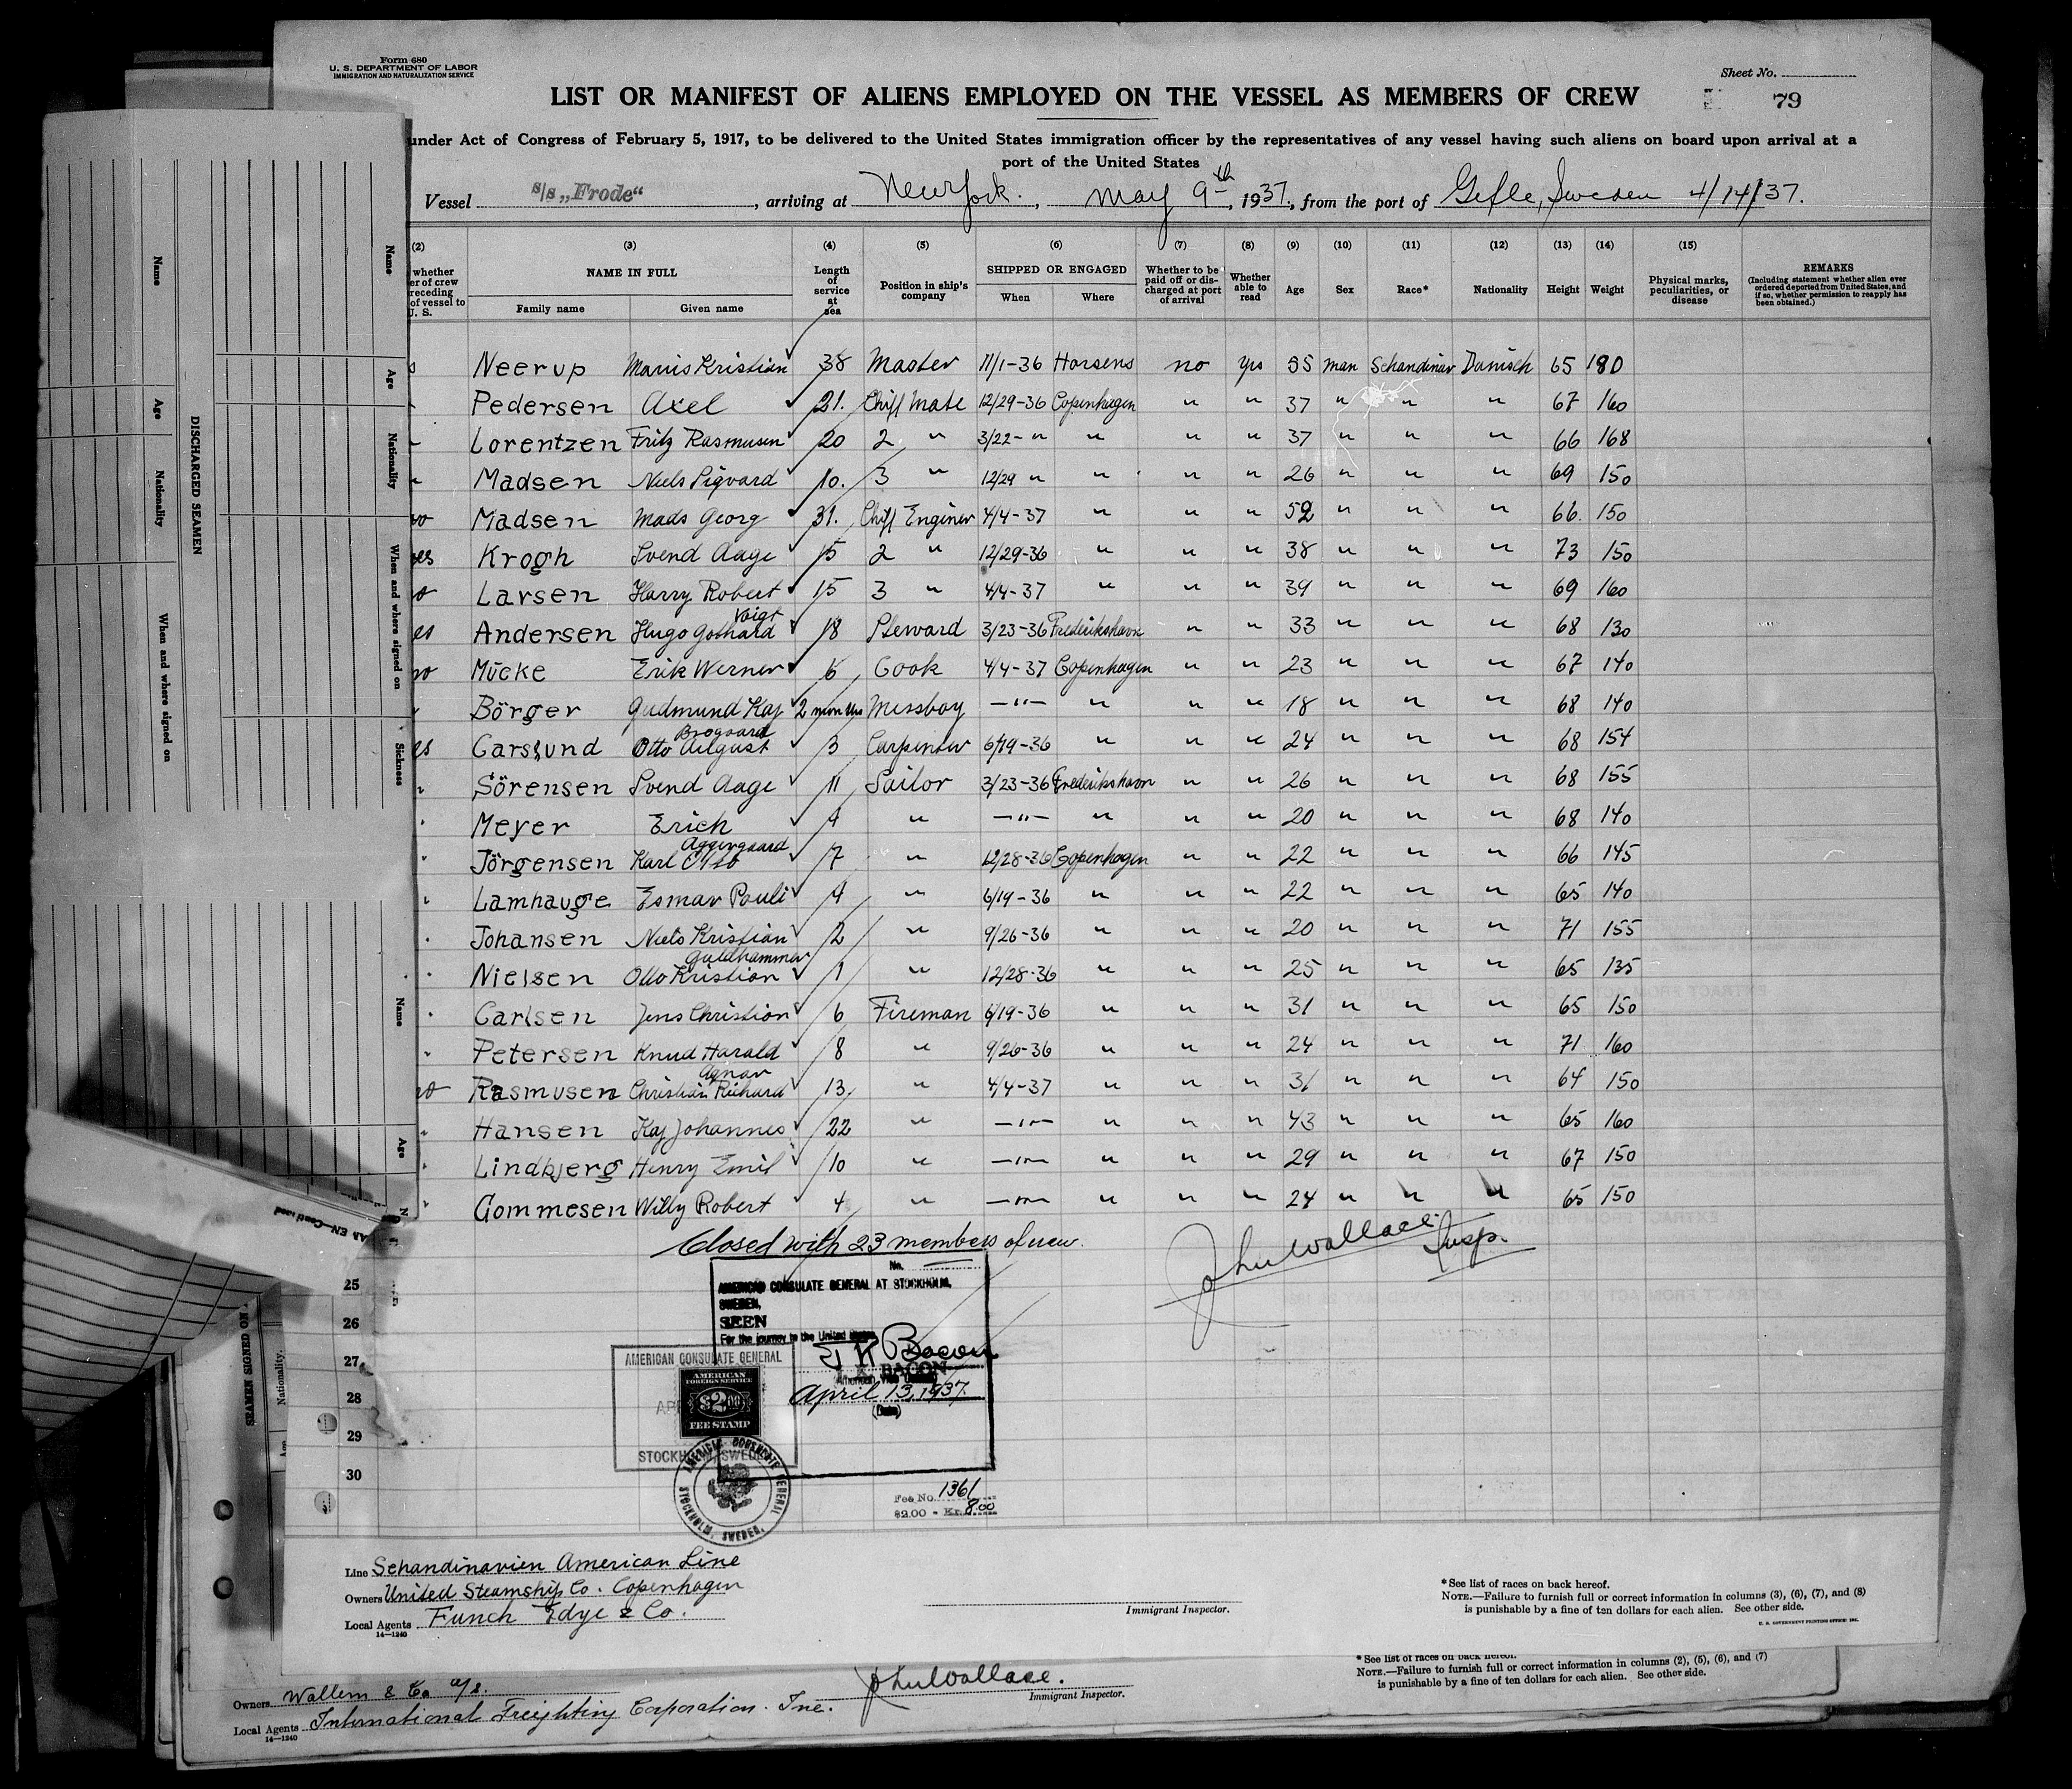 Form 680
U. S. DEPARTMENT OF LABOR
IMMIGRATION AND NATURALIZATION SERVICE
Sheet No.
LIST OR MANIFEST OF ALIENS EMPLOYED ON THE VESSEL AS MEMBERS OF CREW
79
under Act of Congress of February 5, 1917, to be delivered to the United States immigration officer by the representatives of any vessel having such aliens on board upon arrival at a
port of the United States
Vessel s/s „Frode“, arriving at New York., May 9th, 1937, from the port of Gefle, Sweden 4/14/37.
(2) (3) (4) (5) (6) (7) (8) (9) (10) (11) (12) (13) (14) (15)
whether
er of crew
receding
of vessel to
U. S.
NAME IN FULL
Family name Given name
Length of service at sea
Position in ship's company
SHIPPED OR ENGAGED
When Where
Whether to be paid off or discharged at port of arrival
Whether able to read
Age Sex Race* Nationality Height Weight
Physical marks, peculiarities, or disease
REMARKS
(Including statement whether alien ever ordered deported from United States, and if so, whether permission to reapply has been obtained.)
Neerup Marius Kristian 38 Master 11/1-36 Horsens no Yes 55 man Schandinav Danisch 65 180
Pedersen Axel 21. Chiff Mate 12/29-36 Copenhagen " " 37 " " " 67 160
Lorentzen Fritz Rasmusen 20 2 " 3/22- " " " " 37 " " " 66 168
Madsen Niels Sigvard 10. 3 " 12/29 " " " " 26 " " " 69 150
Madsen Mads Georg 31. Chiff Enginer 4/4-37 " " " 52 " " " 66. 150
Krogh Svend Aage 15 2 " 12/29-36 " " " 38 " " " 73 150
Larsen Harry Robert 15 3 " 4/4-37 " " " 39 " " " 69 160
Andersen Hugo Gothard Voigt 18 Steward 3/23-36 Frederikshavn " " 33 " " " 68 130
Mücke Erik Werner 6 Cook 4/4-37 Copenhagen " " 23 " " " 67 140
Börger Gudmund Kaj 2 months Messboy —"— " " " 18 " " " 68 140
Carslund Otto August Brogaard 3 Carpenter 6/19-36 " " " 24 " " " 68 154
Sörensen Svend Aage 11 Sailor 3/23-36 Frederikshavn " " 26 " " " 68 155
Meyer Erich 4 " —"— " " " 20 " " " 68 140
Jörgensen Karl Otto Aggergaard 7 " 12/28-36 Copenhagen " " 22 " " " 66 145
Lamhauge Esmar Pauli 4 " 6/19-36 " " " 22 " " " 65 140
Johansen Niels Kristian 2 " 9/26-36 " " " 20 " " " 71 155
Nielsen Otto Kristian Guldhammer 1 " 12/28-36 " " " 25 " " " 65 135
Carlsen Jens Christian 6 Fireman 6/19-36 " " " 31 " " " 65 150
Petersen Knud Harald 8 " 9/26-36 " " " 24 " " " 71 160
Rasmusen Christian Richard Agnar 13 " 4/4-37 " " " 31 " " " 64 150
Hansen Kaj Johannes 22 " —"— " " " 43 " " " 65 160
Lindbjerg Henry Emil 10 " —"— " " " 29 " " " 67 150
Gommesen Willy Robert 4 " —"— " " " 24 " " " 65 150
Closed with 23 members of crew.
John Wallace. Insp.
25
26
27
28
29
30
No.
AMERICAN CONSULATE GENERAL AT STOCKHOLM,
SWEDEN,
SEEN
For the journey to the United States
K Bacon
BACON
American Vice Consul
April 13, 1937.
(Date)
AMERICAN CONSULATE GENERAL
STOCKHOLM, SWEDEN
AMERICAN
FOREIGN SERVICE
$2.00
FEE STAMP
AMERICAN CONSULATE GENERAL
STOCKHOLM, SWEDEN.
Fee No. 1361
$2.00 = Kr. 8.00
Line Schandinavien American Line
Owners United Steamship Co. Copenhagen
Local Agents Funch Edye & Co.
14—1240
Immigrant Inspector.
* See list of races on back hereof.
NOTE.—Failure to furnish full or correct information in columns (3), (6), (7), and (8)
is punishable by a fine of ten dollars for each alien. See other side.
U. S. GOVERNMENT PRINTING OFFICE
* See list of races on back hereof.
NOTE.—Failure to furnish full or correct information in columns (2), (5), (6), and (7)
is punishable by a fine of ten dollars for each alien. See other side.
Owners Wallem & Co a/s.
John Wallace.
Immigrant Inspector.
Local Agents International Freighting Corporation. Inc.
14—1240
DISCHARGED SEAMEN
Name
Age
Nationality
When and where signed on
Name
Age
Nationality
When and where signed on
Sickness
Name
Age
SEAMEN SIGNED ON
Nationality.